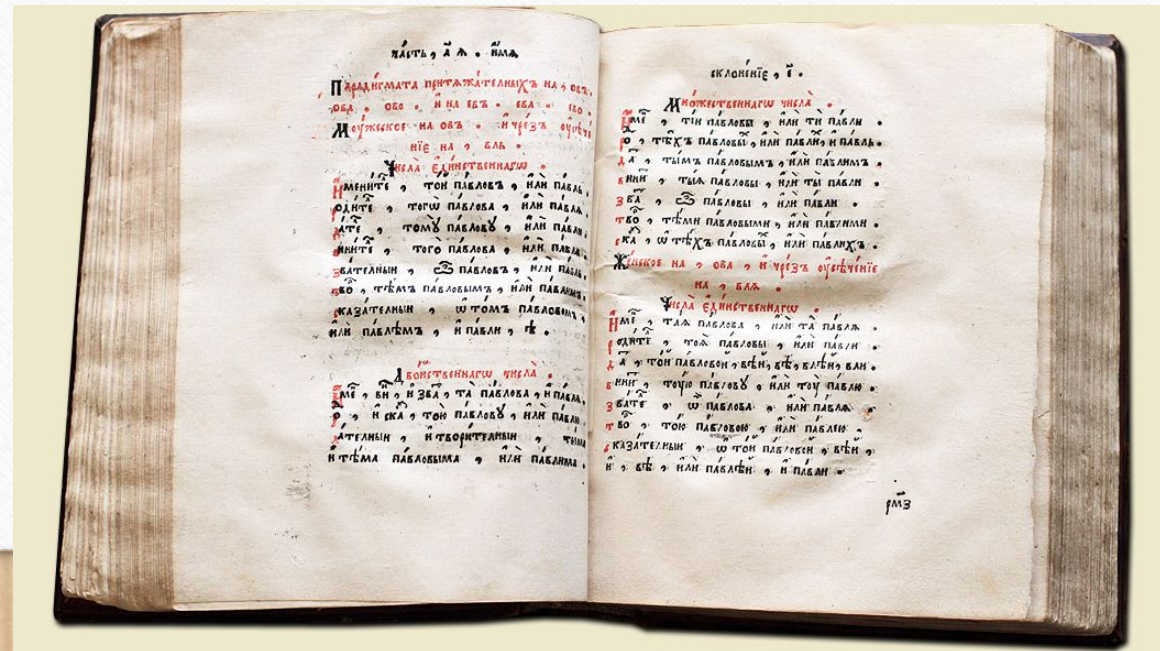 часть , а҃ ѧ . и҆мѧ
Парадигмата притѧжателныхъ на , овъ .
ова . ово . и҆ на евъ . ева . ево .
Мꙋжеское на овъ . и҆ чрезъ ᲂу҆сѣче
нїе на , вль .
Числа є҆динственнагѡ .
Имените , той павловъ , и҆лѝ павль .
родите , тогѡ павлова , и҆лѝ павлѧ .
дате , томꙋ̀ павловꙋ , и҆лѝ павлю
вините , того павлова , и҆лѝ павлѧ
звателный , ѽ павловъ , и҆лѝ павль .
тво , тѣмъ павловымъ , и҆лѝ павлимъ .
сказателный , ѡ҆ томъ павловомъ ,
и҆лѝ павлѣмъ , и҆ павли , ѣ .
Двойственнагѡ числа̀ .
Име , ви , и҆ зва , та павлова , и҆ павлѧ .
ро , и҆ ска , тою павловꙋ , и҆лѝ павлю
дателный , и҆ творителный , тѣма
и҆ тѣма павловыма , и҆лѝ павлима .
склоненїе , г҃ .
Множественнагѡ числа̀ .
Име , тїи павловы , и҆лѝ ти павли .
ро , тѣхъ павловы , и҆лѝ павли , и҆ павль .
да , тымъ павловымъ , и҆лѝ павлимъ .
вини , тыѧ павловы , и҆лѝ ты павли .
зва , ѽ павловы , и҆лѝ павли .
тво , тѣми павловыми , и҆лѝ павлими .
ска , ѡ҆ тѣхъ павловы , и҆лѝ павлихъ .
Женское на , ова , и҆ чрезъ ᲂу҆сѣченїе
на , влѧ .
Числа̀ є҆динственнагѡ .
Име , таѧ павлова , и҆лѝ та павлѧ .
родите , тоѧ павловы , и҆лѝ павли .
да , той павловой , вѣй , вѣ , влѣй , вли .
вини , тꙋю павловꙋ , и҆лѝ тꙋ павлю .
звате , ѡ павлова , и҆лѝ павлѧ .
тво , тою павловою , и҆лѝ павлею .
сказателный , ѡ҆ той павловой , вѣй ,
и҆ , вѣ , и҆лѝ павлѣй , и҆ павли .
рм҃з